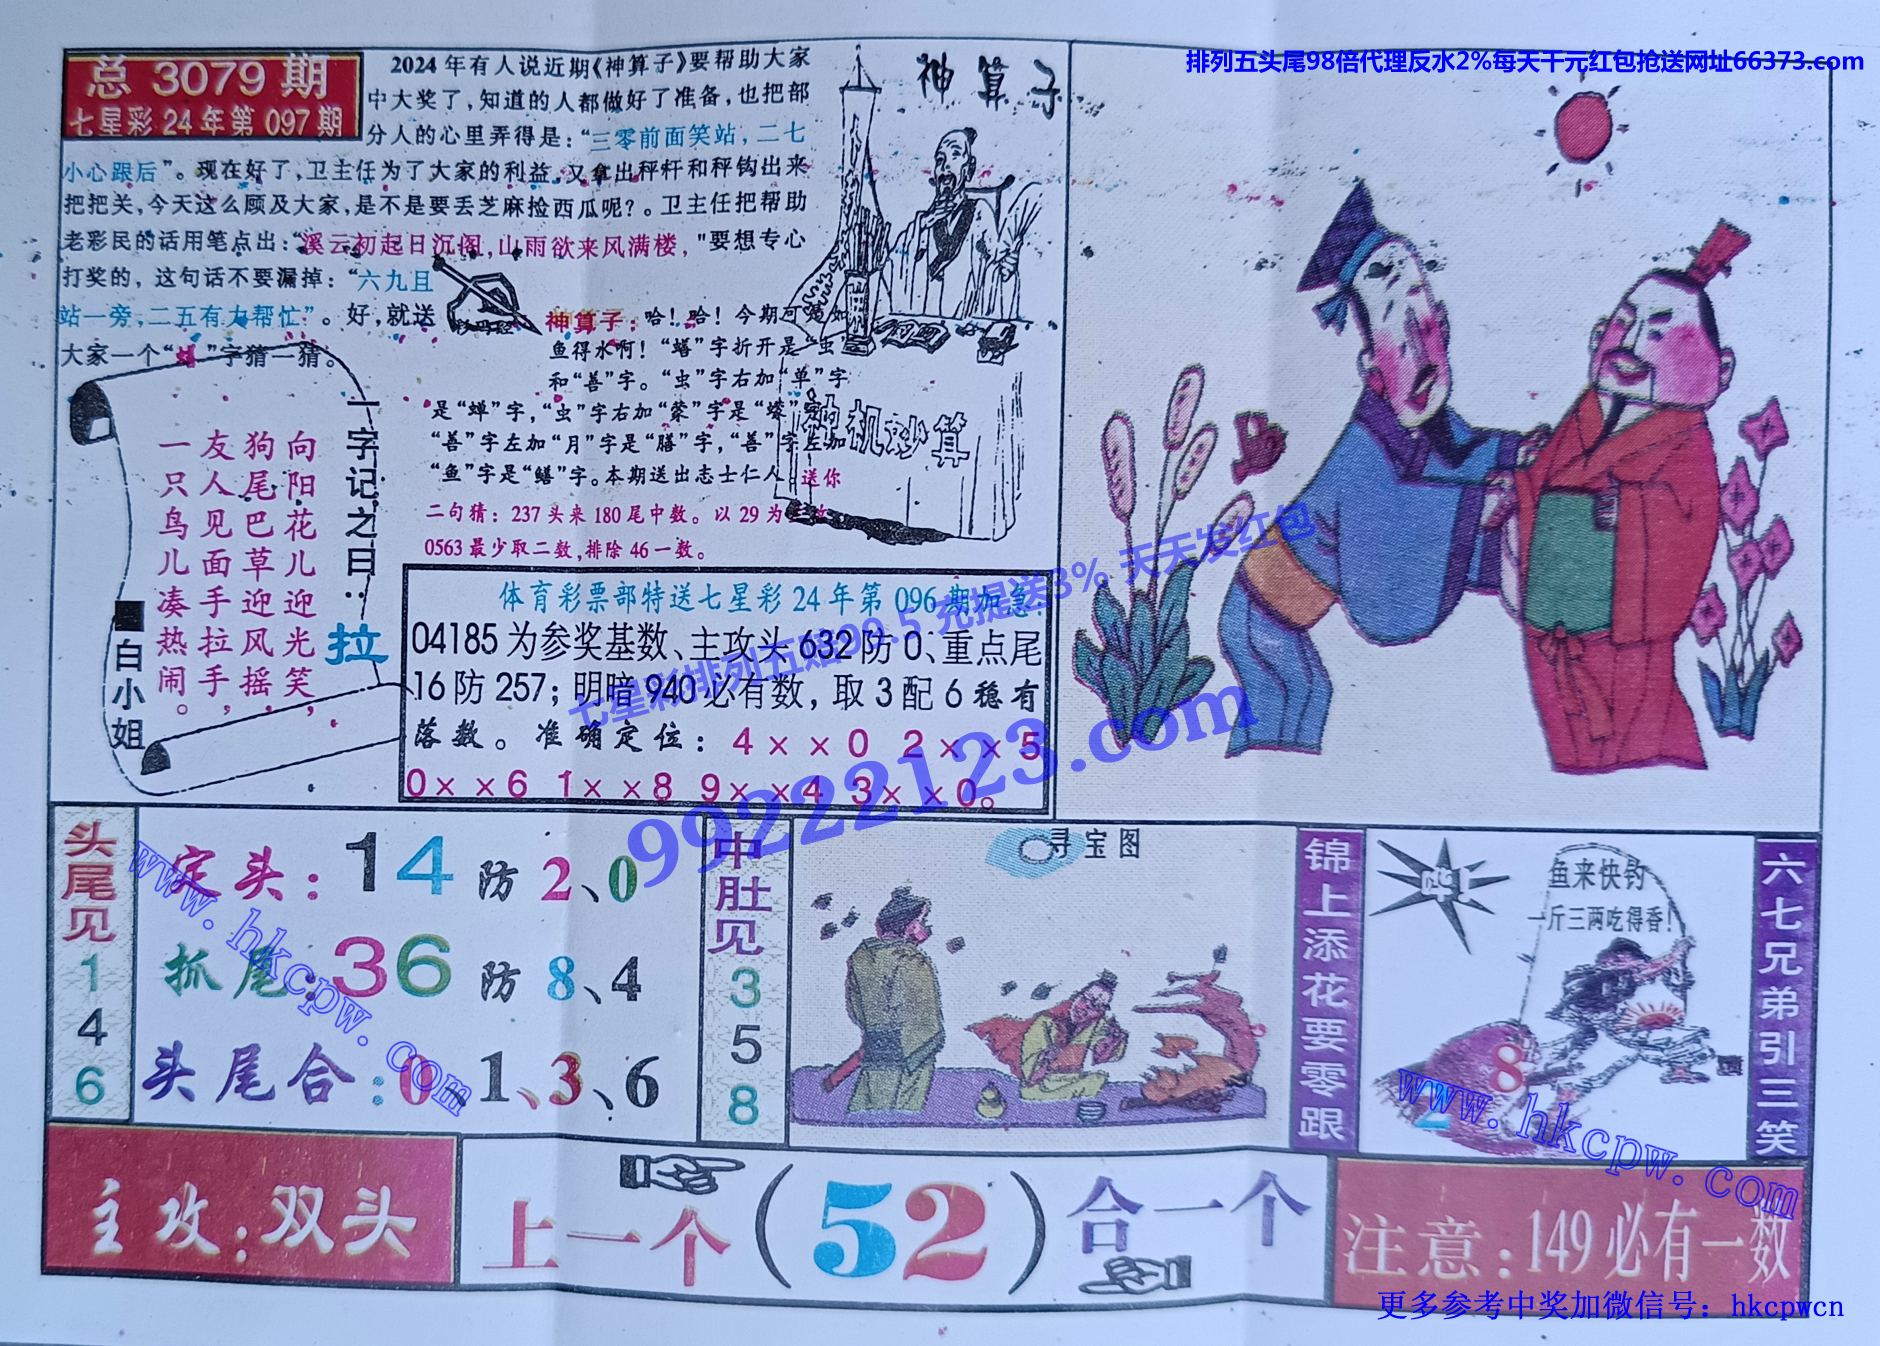 排列五头尾98倍代理反水2%每天千元红包抢送网址66373.com
总 3079 期
七星彩 24 年第 097 期
2024 年有人说近期《神算子》要帮助大家
中大奖了,知道的人都做好了准备,也把部
分人的心里弄得是:“三零前面笑站,二七
小心跟后”。现在好了,卫主任为了大家的利益,又拿出秤杆和秤钩出来
把把关,今天这么顾及大家,是不是要丢芝麻捡西瓜呢?。卫主任把帮助
老彩民的话用笔点出:“溪云初起日沉阁,山雨欲来风满楼,"要想专心
打奖的，这句话不要漏掉:“六九且
站一旁,二五有大帮忙”。好,就送
大家一个“ ”字猜一猜。
神算子
神算子:哈!哈!今期可是如
鱼得水啊!“蟮”字折开是“虫”
和“善”字。“虫”字右加“单”字
是“蝉”字,“虫”字右加
“善”字左加“月”字是“膳”字,“善”字左加
“鱼”字是“鳝”字。本期送出志士仁人 送你
二句猜: 237 头来 180 尾中数。以 29 为
0563 最少取二数,排除 46 一数。
神机妙算
一字记之曰:
拉
向阳花儿迎光笑,
狗尾巴草迎风摇,
友人见面手拉手,
一只鸟儿凑热闹。
■白小姐
体育彩票部特送七星彩 24 年第 096 期加急:
04185 为参奖基数、主攻头 632 防 0、重点尾
16 防 257; 明暗 940 必有数, 取 3 配 6 稳有
落数。准确定位: 4××0 2××5
0××6 1××8 9××4 3××0。
七星彩排列五赔99.5 充提送3% 天天发红包
99222123.com
头尾见146
定头: 14 防 2、0
抓尾:36 防 8、4
头尾合:0、1、3、6
www.hkcpw.com
中肚见358
寻宝图
锦上添花要零跟
鱼来快钓
一斤三两吃得香!
8
2
www.hkcpw.com
六七兄弟引三笑
主攻:双头
上一个(52)合一个
注意:149必有一数
更多参考中奖加微信号: hkcpwcn